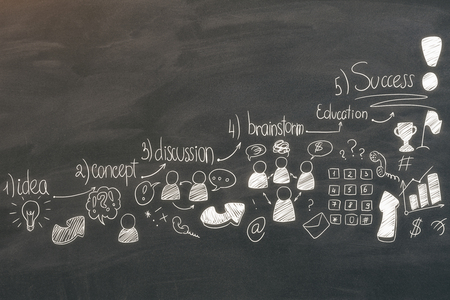 1) idea
2) concept
3) discussion
4) brainstorm
Education
5) Success